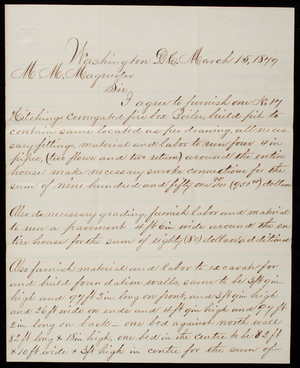 Washington D.C. March 15, 1879
M. M. Magruder
Sir
I agree to furnish one No 17
Hitchings corrugated fire box Boiler, build pit to
contain same located as per drawing, all neces-
sary fittings, material and labor to run four 4 in
pipes, (two flows and two return) around the entire
house make necessary smoke connections for the
sum of nine hundred and fifty one dollars
Also do necessary grading furnish labor and material
to run a pavement 4 ft 6 in wide around the en
tire house for the sum of eighty dollars
Also furnish material and labor to excavate for
and build foundation walls same to be 3 ft 9 in
high and 97 ft 2 in long on front, and 3 ft 9 in high
and 26 ft wide on ends and 4 ft 9 in high and 97 ft
2 in long on back - one bed against north wall
82 ft long & 18 in high, one bed in the centre to be 82 ft
& 10 ft wide & 3 ft high in centre for the sum of